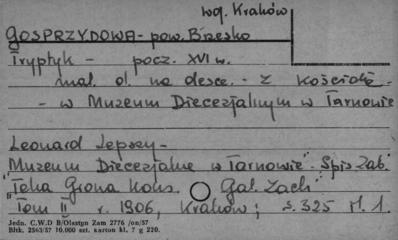 woj. Kraków
GOSPRZYDOWA - pow. Brzesko
Tryptyk - pocz. XVI w.
mal. ol. na desce. - z Kościoła -
- w Muzeum Diecezjalnym w Tarnowie
Leonard Lepszy -
"Muzeum Diecezjalne w Tarnowie". Spis Zab.
"Teka Grona Kons. Gal. Zach"
"Tom II r. 1906, Kraków; s. 325 il. 1.
Jedn. C.W.D B/Olsztyn Zam 2776 /on/57
Bltk. 2563/57 10.000 szt. karton kl. 7 g 220.